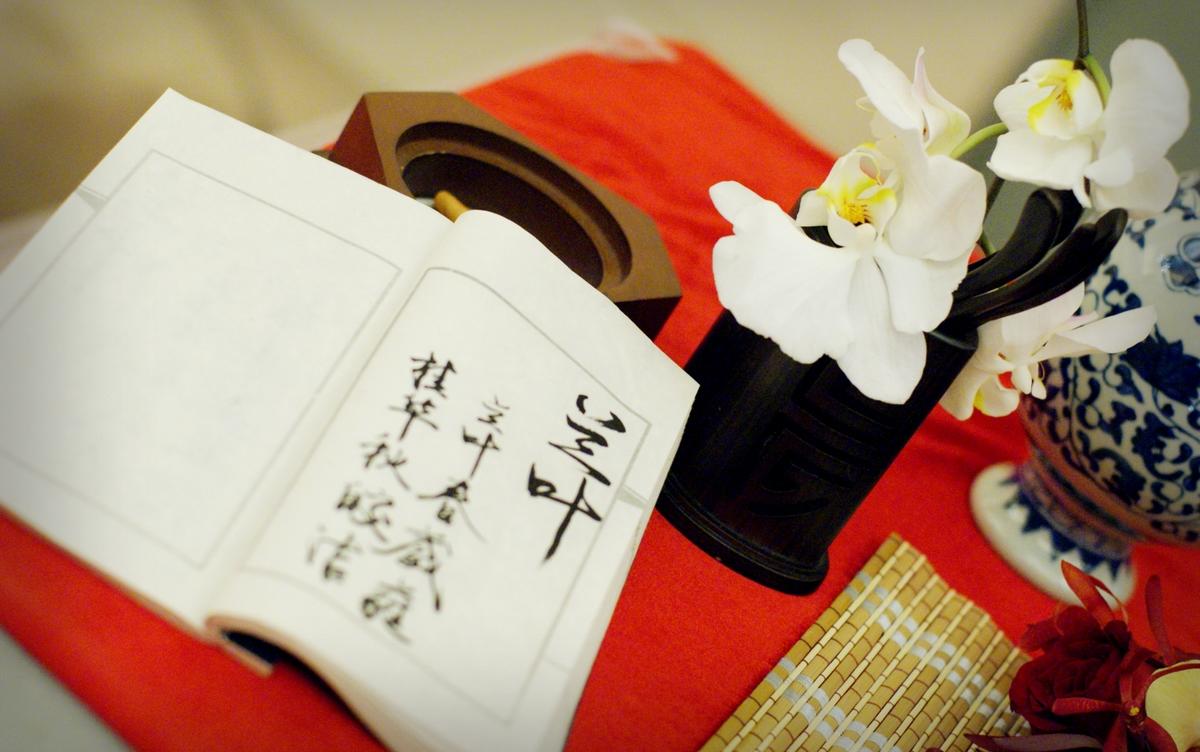 兰叶
兰叶春葳蕤
桂华秋皎洁